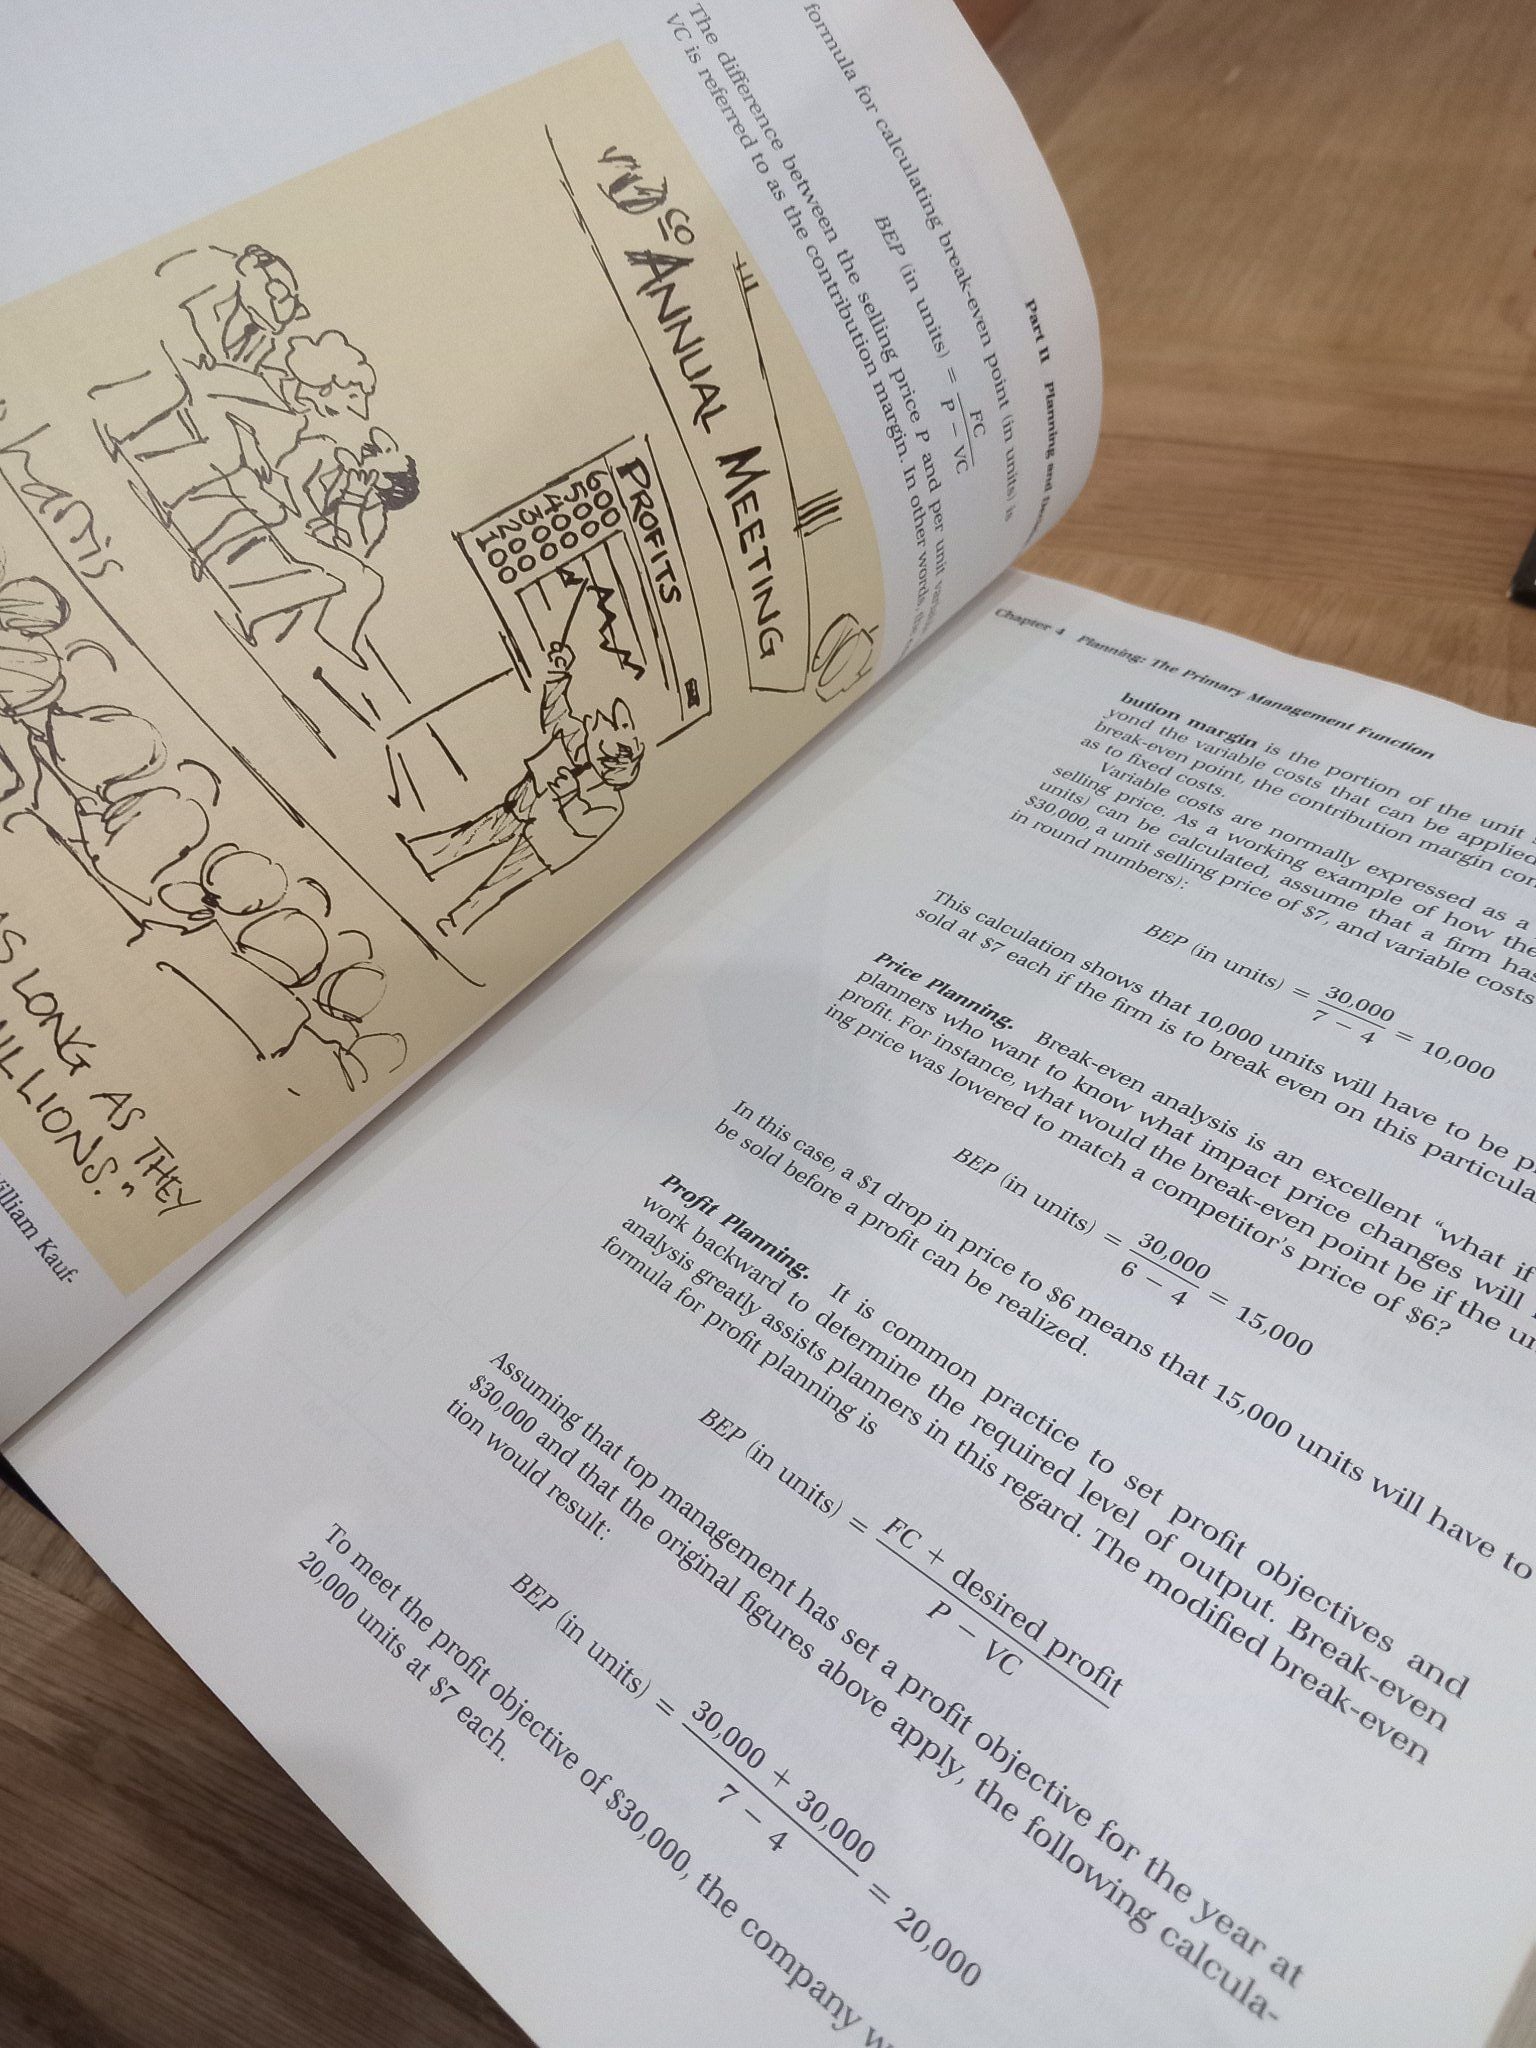 Part II Planning and
formula for calculating break-even point (in units) is
BEP (in units) = FC
P − VC
The difference between the selling price P and per unit
VC is referred to as the contribution margin. In other words,
CO ANNUAL MEETING
PROFITS
600
500
400
300
200
100
harris
AS LONG AS THEY
MILLIONS."
William Kauf-
Chapter 4 Planning: The Primary Management Function
bution margin is the portion of the unit
yond the variable costs that can be applied
break-even point, the contribution margin
as to fixed costs.
Variable costs are normally expressed as a
selling price. As a working example of how the
units) can be calculated, assume that a firm has
$30,000, a unit selling price of $7, and variable costs
in round numbers):
BEP (in units) = 30,000
7 − 4
= 10,000
This calculation shows that 10,000 units will have to be
sold at $7 each if the firm is to break even on this
Price Planning. Break-even analysis is an excellent "what if
planners who want to know what impact price changes will
profit. For instance, what would the break-even point be if the
ing price was lowered to match a competitor's price of $6?
BEP (in units) = 30,000
6 − 4
= 15,000
In this case, a $1 drop in price to $6 means that 15,000 units will have to
be sold before a profit can be realized.
Profit Planning. It is common practice to set profit objectives and
work backward to determine the required level of output. Break-even
analysis greatly assists planners in this regard. The modified break-even
formula for profit planning is
BEP (in units) = FC + desired profit
P − VC
Assuming that top management has set a profit objective for the year at
$30,000 and that the original figures above apply, the following calcula-
tion would result:
BEP (in units) = 30,000 + 30,000
7 − 4
= 20,000
To meet the profit objective of $30,000, the company
20,000 units at $7 each.